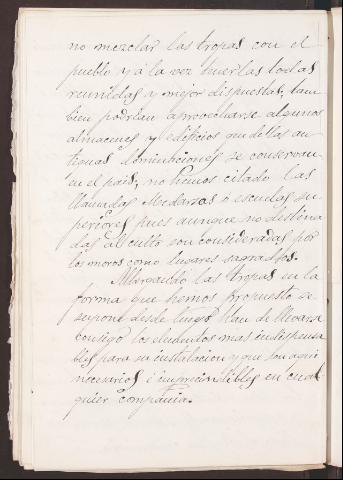 no mezclar las tropas con el
pueblo y á la vez tenerlas todas
reunidas y mejor dispuestas; tam-
bien podrian aprovecharse algunos
almacenes y edificios que de las an-
tiguas dominaciones se conservan
en el pais; no hemos citado las
llamadas Medarsas o escuelas su-
periores pues aunque no destina
das al culto son consideradas por
los moros como lugares sagrados.
Albergando las tropas en la
forma que hemos propuesto se
supone desde luego han de llevar
consigo los elementos mas indispensa
bles para su instalacion y que son aqui
necesarios é imprescindibles en cual-
quier compañia.